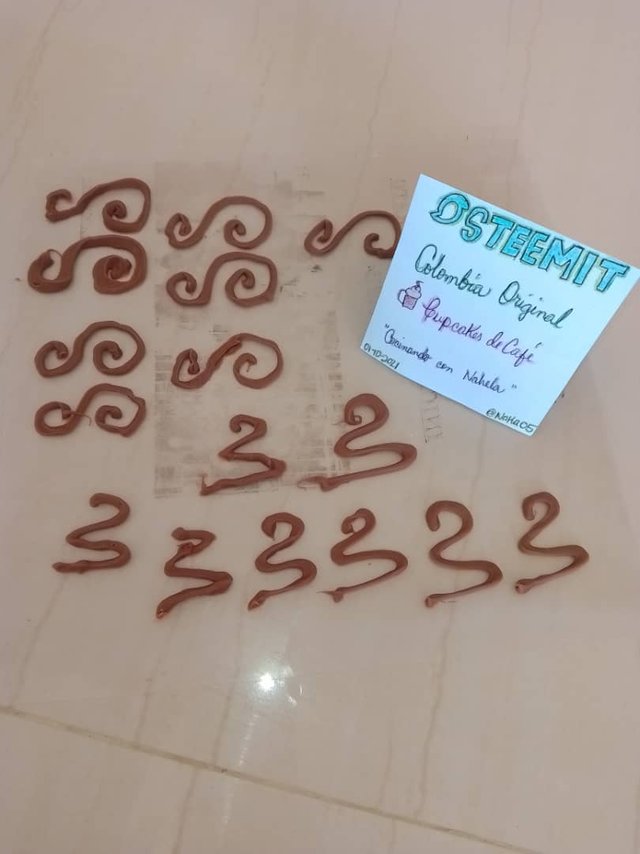 OSTEEMIT
Colombia Original
Cupcakes de Café
"Cocinando con Nahela"
01-10-2021
@Naha05